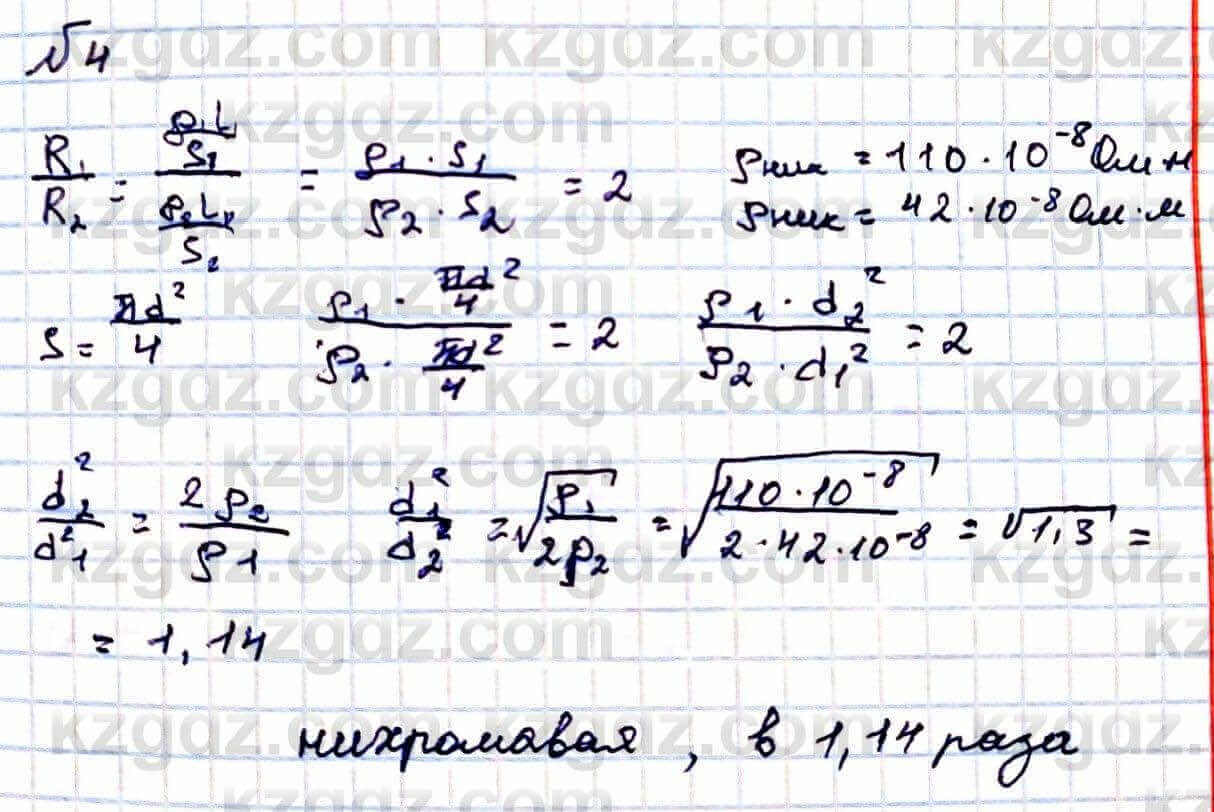 №4
R₁/R₂ = (ρ₁L/S₁)/(ρ₂L₂/S₂) = (ρ1·S1)/(ρ2·S2) = 2 ρник = 110·10⁻⁸ Ом·м
ρник = 42·10⁻⁸ Ом·м
S = πd²/4 (ρ1·πd²/4)/(ρ2·πd²/4) = 2 (ρ1·d₂²)/(ρ2·d₁²) = 2
d₂²/d₁² = 2ρ2/ρ1 d₁²/d₂² = √(ρ₁/2ρ₂) = √(110·10⁻⁸/2·42·10⁻⁸) = √1,3 =
= 1,14
нихромавая, в 1,14 раза
kzgdz.com